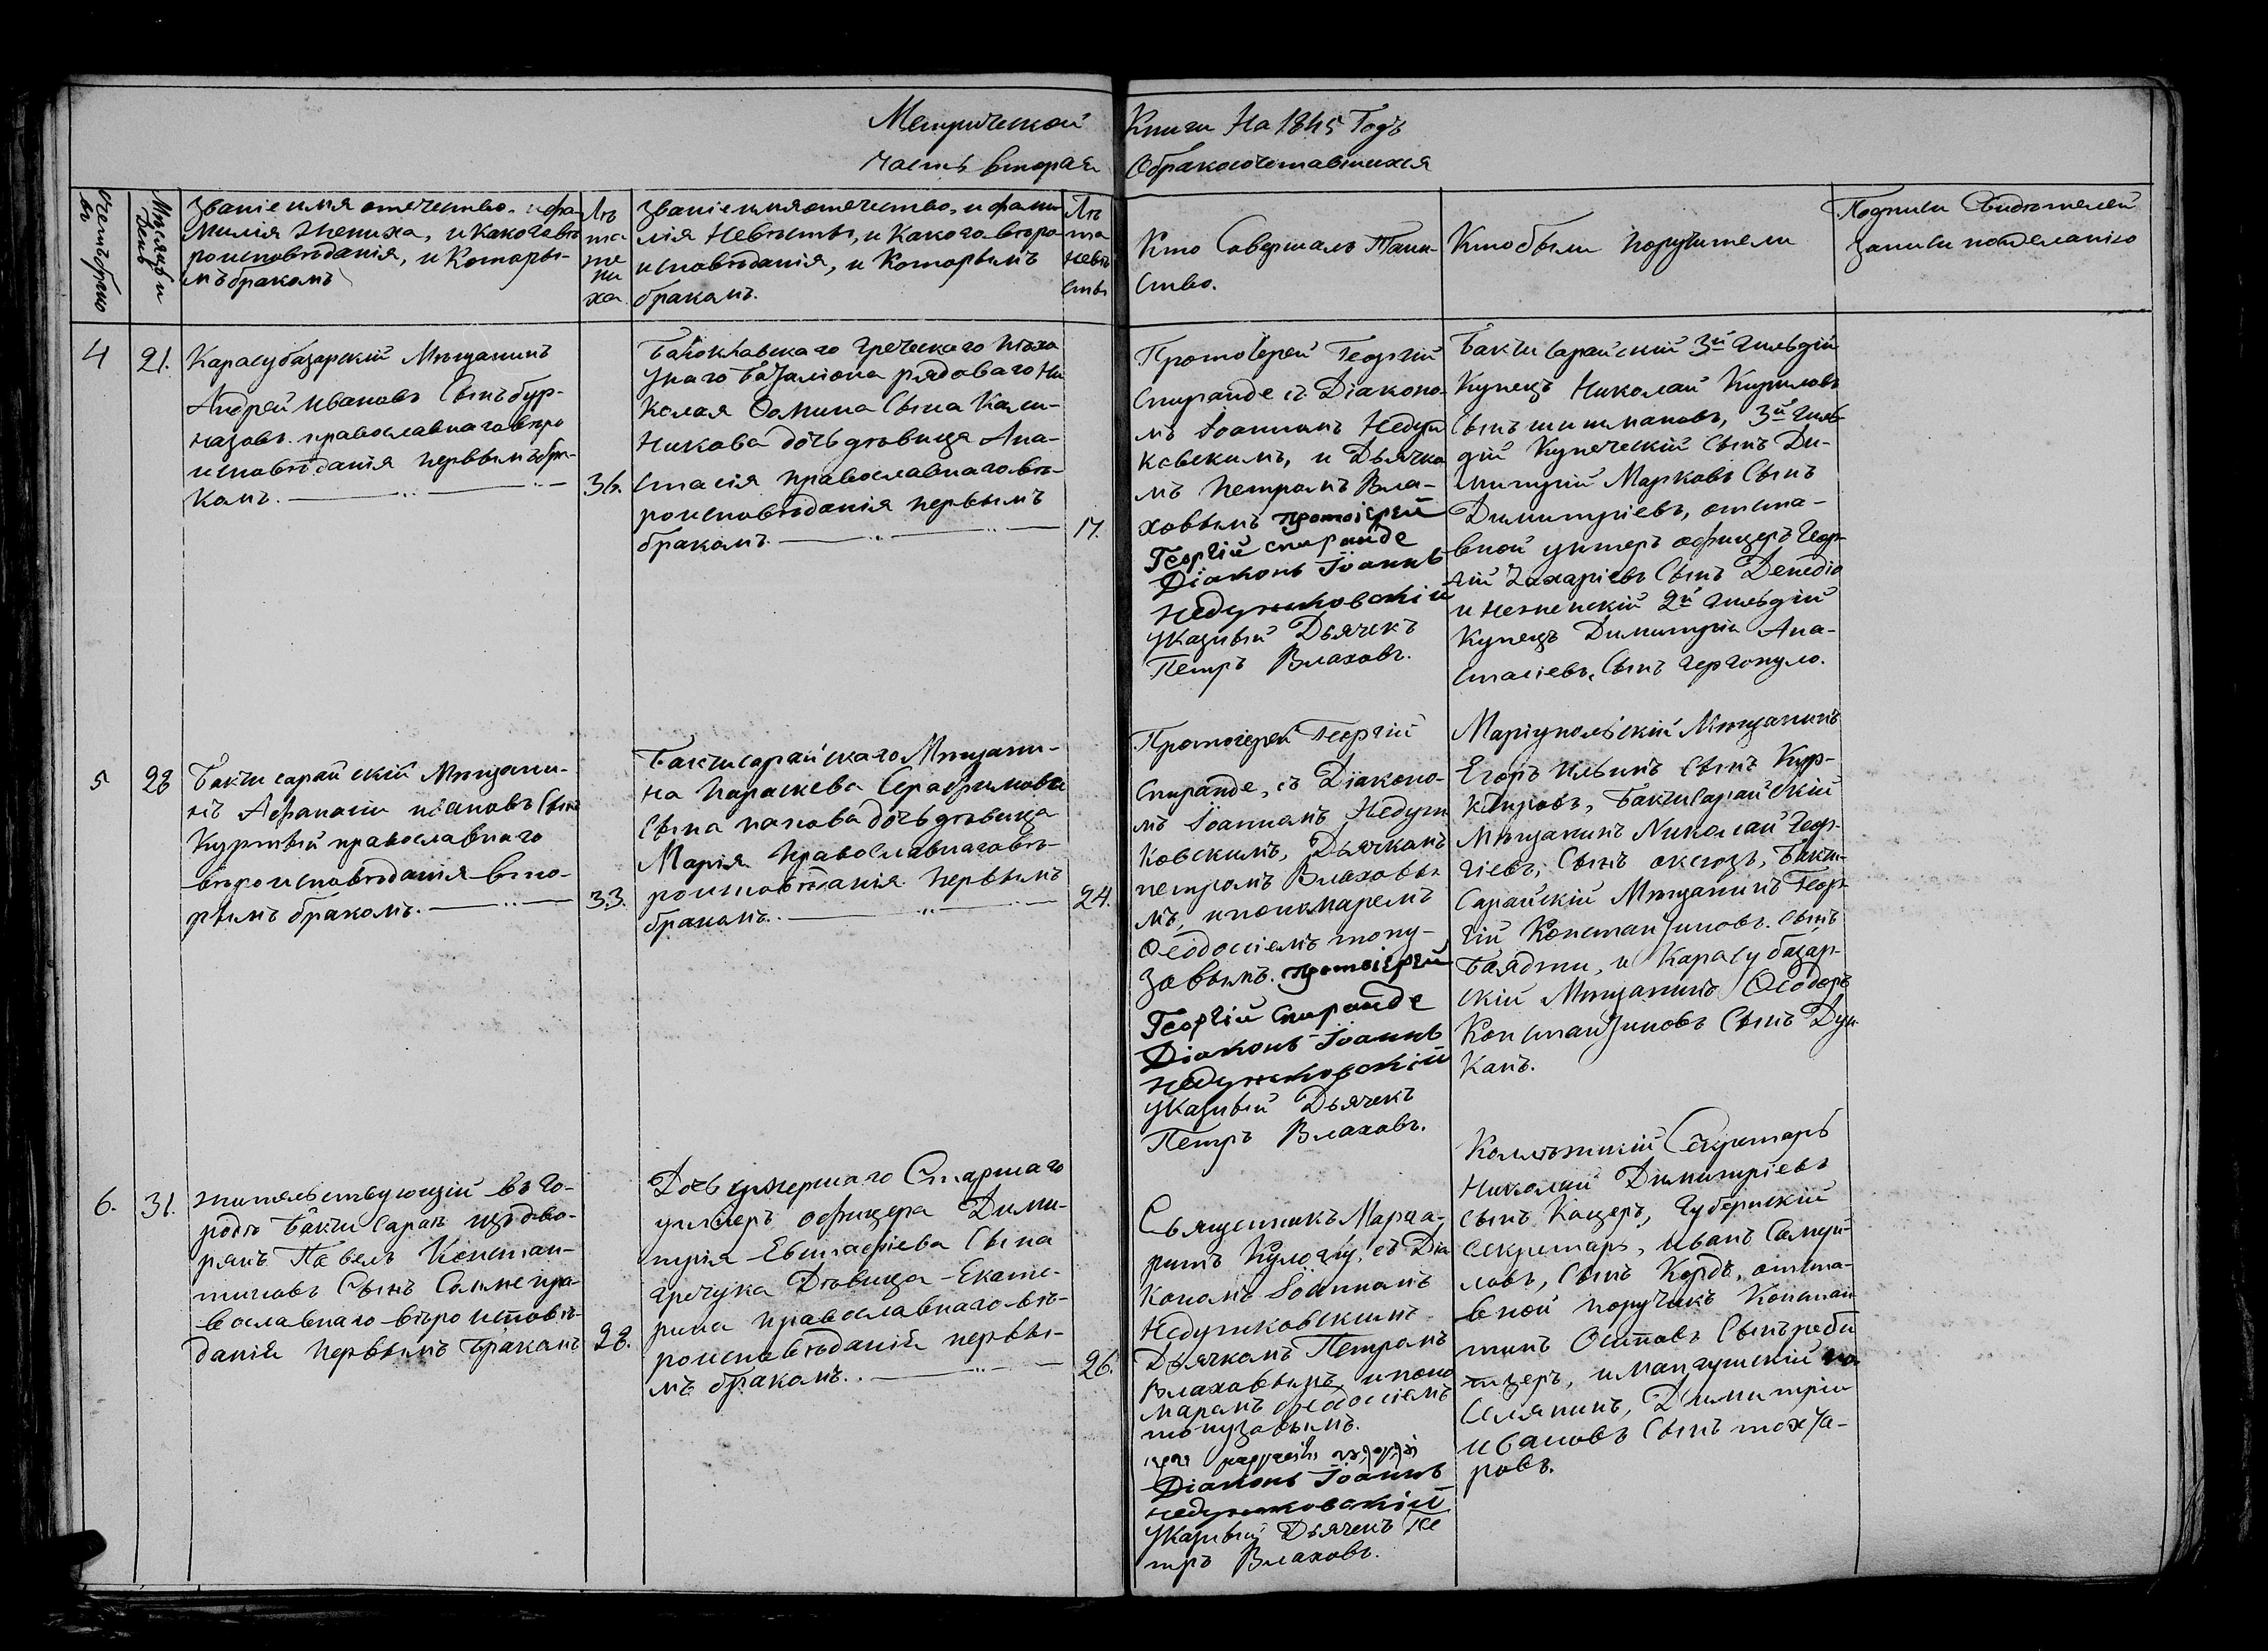 Метрической Книги На 1845 Годъ
Часть вторая Обракосочетавшихся
Счетъ браковъ
Мѣсяцъ и День
Званіе имя отечество, и фа-
милія Жениха, и какого вѣ
роисповѣданія, и Которы-
мъ бракомъ
Лѣ
та
же
ни
ха
Званіе имя отечество, и фами
лія Невѣсты, и Какого вѣро
исповѣданія, и Которымъ
бракомъ.
Лѣ
та
невѣ
сты
Кто Совершалъ Таин-
ство.
Кто были Поручители
Подписи Свидѣтелей
записи по желанію
4
21.
Карасубазарскій Мѣщанинъ
Андрей Ивановъ Сынъ бур-
назовъ православнаго вѣро
исповѣданія первымъ бра-
комъ.
36.
Балоклавскаго Греческаго пѣхо
тнаго Баталіона рядоваго Ни
колая Фомина Сына Кали-
никова дочь дѣвица Ана-
стасія православнаго вѣ-
роисповѣданія первымъ
бракомъ.
17.
Протоіерей Георгій
Спиранде съ Діаконо-
мъ Іоанномъ Недзи
ковскимъ, и Дьячко
мъ Петромъ Вла-
ховымъ протоіерей
Георгій спиранде
Діаконъ Іоаннъ
Указный Дьячекъ
Петръ Влаховъ.
Бахчисарайскій 3й Гильдіи
Купецъ Николай Кириловъ
Сынъ шишмановъ, 3й гиль
діи Купеческій Сынъ Ди-
митрій Марковъ Сынъ
Димитріевъ, отста-
вной унтеръ офицеръ Геор-
гій Захаріевъ Сынъ
и нежинскій 2й Гильдіи
Купецъ Димитрій Ана-
стасіевъ, Сынъ
5
28
Бахчисарайскій Мѣщани-
нъ Афанасій ивановъ Сынъ
православнаго
вѣроисповѣданія вто-
рымъ бракомъ.
33.
Бахчисарайскаго Мѣщани-
на Параскева Серафимова
Сына попова дочь дѣвица
Марія Православнаго вѣ-
роисповѣданія Первымъ
бракомъ.
24.
Протоіерей Георгій
Спиранде, съ Діаконо-
мъ Іоанномъ
ковскимъ, Дьячкомъ
петромъ Влаховы
мъ, и пономаремъ
Ѳеодосіемъ топу-
зовымъ. протоіерей
Георгій Спиранде
Діаконъ Іоаннъ
Указный Дьячекъ
Петръ Влаховъ.
Маріупольскій Мѣщанинъ
Егоръ Ильинъ Сынъ
Бахчисарайскій
Мѣщанинъ Николай Геор-
гіевъ, Сынъ Бахчи-
Сарайскій Мѣщанинъ Геор-
гій Константиновъ Сынъ
и Карасубазар-
скій Мѣщанинъ Ѳеодоръ
Константиновъ Сынъ
6.
31.
жительствующій въ го-
родѣ Бахчисараѣ изъ дво-
рянъ Павелъ Констан-
тиновъ Сынъ пра-
вославнаго вѣроисповѣ-
данія Первымъ бракомъ
28.
Дочь умершаго Старшаго
унтеръ офицера Дими-
трія Евстафіева Сына
Дѣвица Екате-
рина православнаго вѣ-
роисповѣданія первы-
мъ бракомъ.
26.
Священникъ
съ Діа
кономъ Іоанномъ
Дьячкомъ Петромъ
Влаховымъ, и поно
маремъ Ѳеодосіемъ
топузовымъ.
Діаконъ Іоаннъ
Указный Дьячекъ Пе
тръ Влаховъ.
Коллежскій Секретарь
Николай Димитріевъ
Сынъ Губернскій
Секретарь, иванъ
Сынъ отста-
вной поручикъ Констан
тинъ Осиповъ Сынъ
Димитрій
ивановъ Сынъ